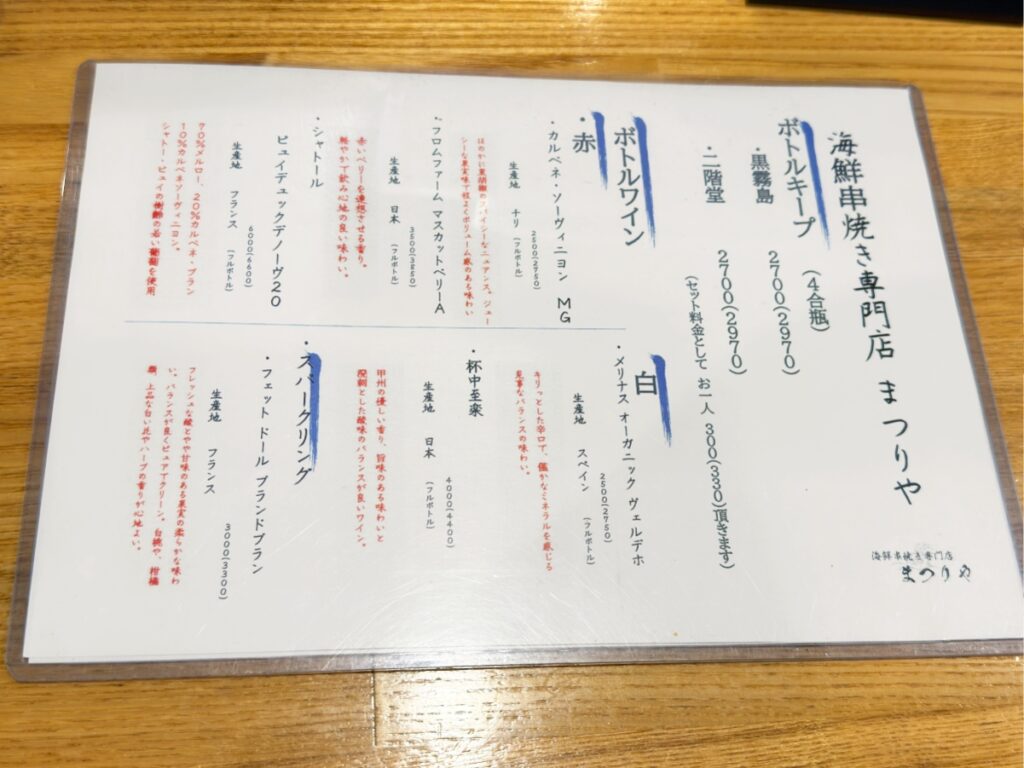 海鮮串焼き専門店 まつりや
海鮮串焼き専門店
まつりや
ボトルキープ
(4合瓶)
・黒霧島 2700(2970)
・二階堂 2700(2970)
(セット料金として お一人 300(330)頂きます)
ボトルワイン
赤
・カルベネ・ソーヴィニヨン MG
2500(2750)
生産地 チリ (フルボトル)
ほのかに黒胡椒のスパイシーなニュアンス。ジュー
シーな果実味で程よくボリューム感のある味わい
・フロムファーム マスカットベリーA
3500(3850)
生産地 日本 (フルボトル)
赤いベリーを連想させる香り。
軽やかで飲み心地の良い味わい。
・シャトール
ピュイデュックデノーヴ20
6000(6600)
生産地 フランス (フルボトル)
70%メルロー、20%カルベネ・フラン
10%カルベネソーヴィニヨン。
シャトー・ピュイの樹齢の若い葡萄を使用
白
・メリナス オーガニック ヴェルデホ
2500(2750)
生産地 スペイン (フルボトル)
キリっとした辛口で、僅かなミネラルを感じる
見事なバランスの味わい。
・杯中至楽
4000(4400)
生産地 日本 (フルボトル)
甲州の優しい香り、旨味のある味わいと
溌剌とした酸味のバランスが良いワイン。
・スパークリング
・フェットドール ブランドブラン
3000(3300)
生産地 フランス
フレッシュな酸とやや甘味のある果実の柔らかな味わ
い。バランスが良くピュアでクリーン。白桃や、柑橘
類、上品な白い花やハーブの香りが心地よい。